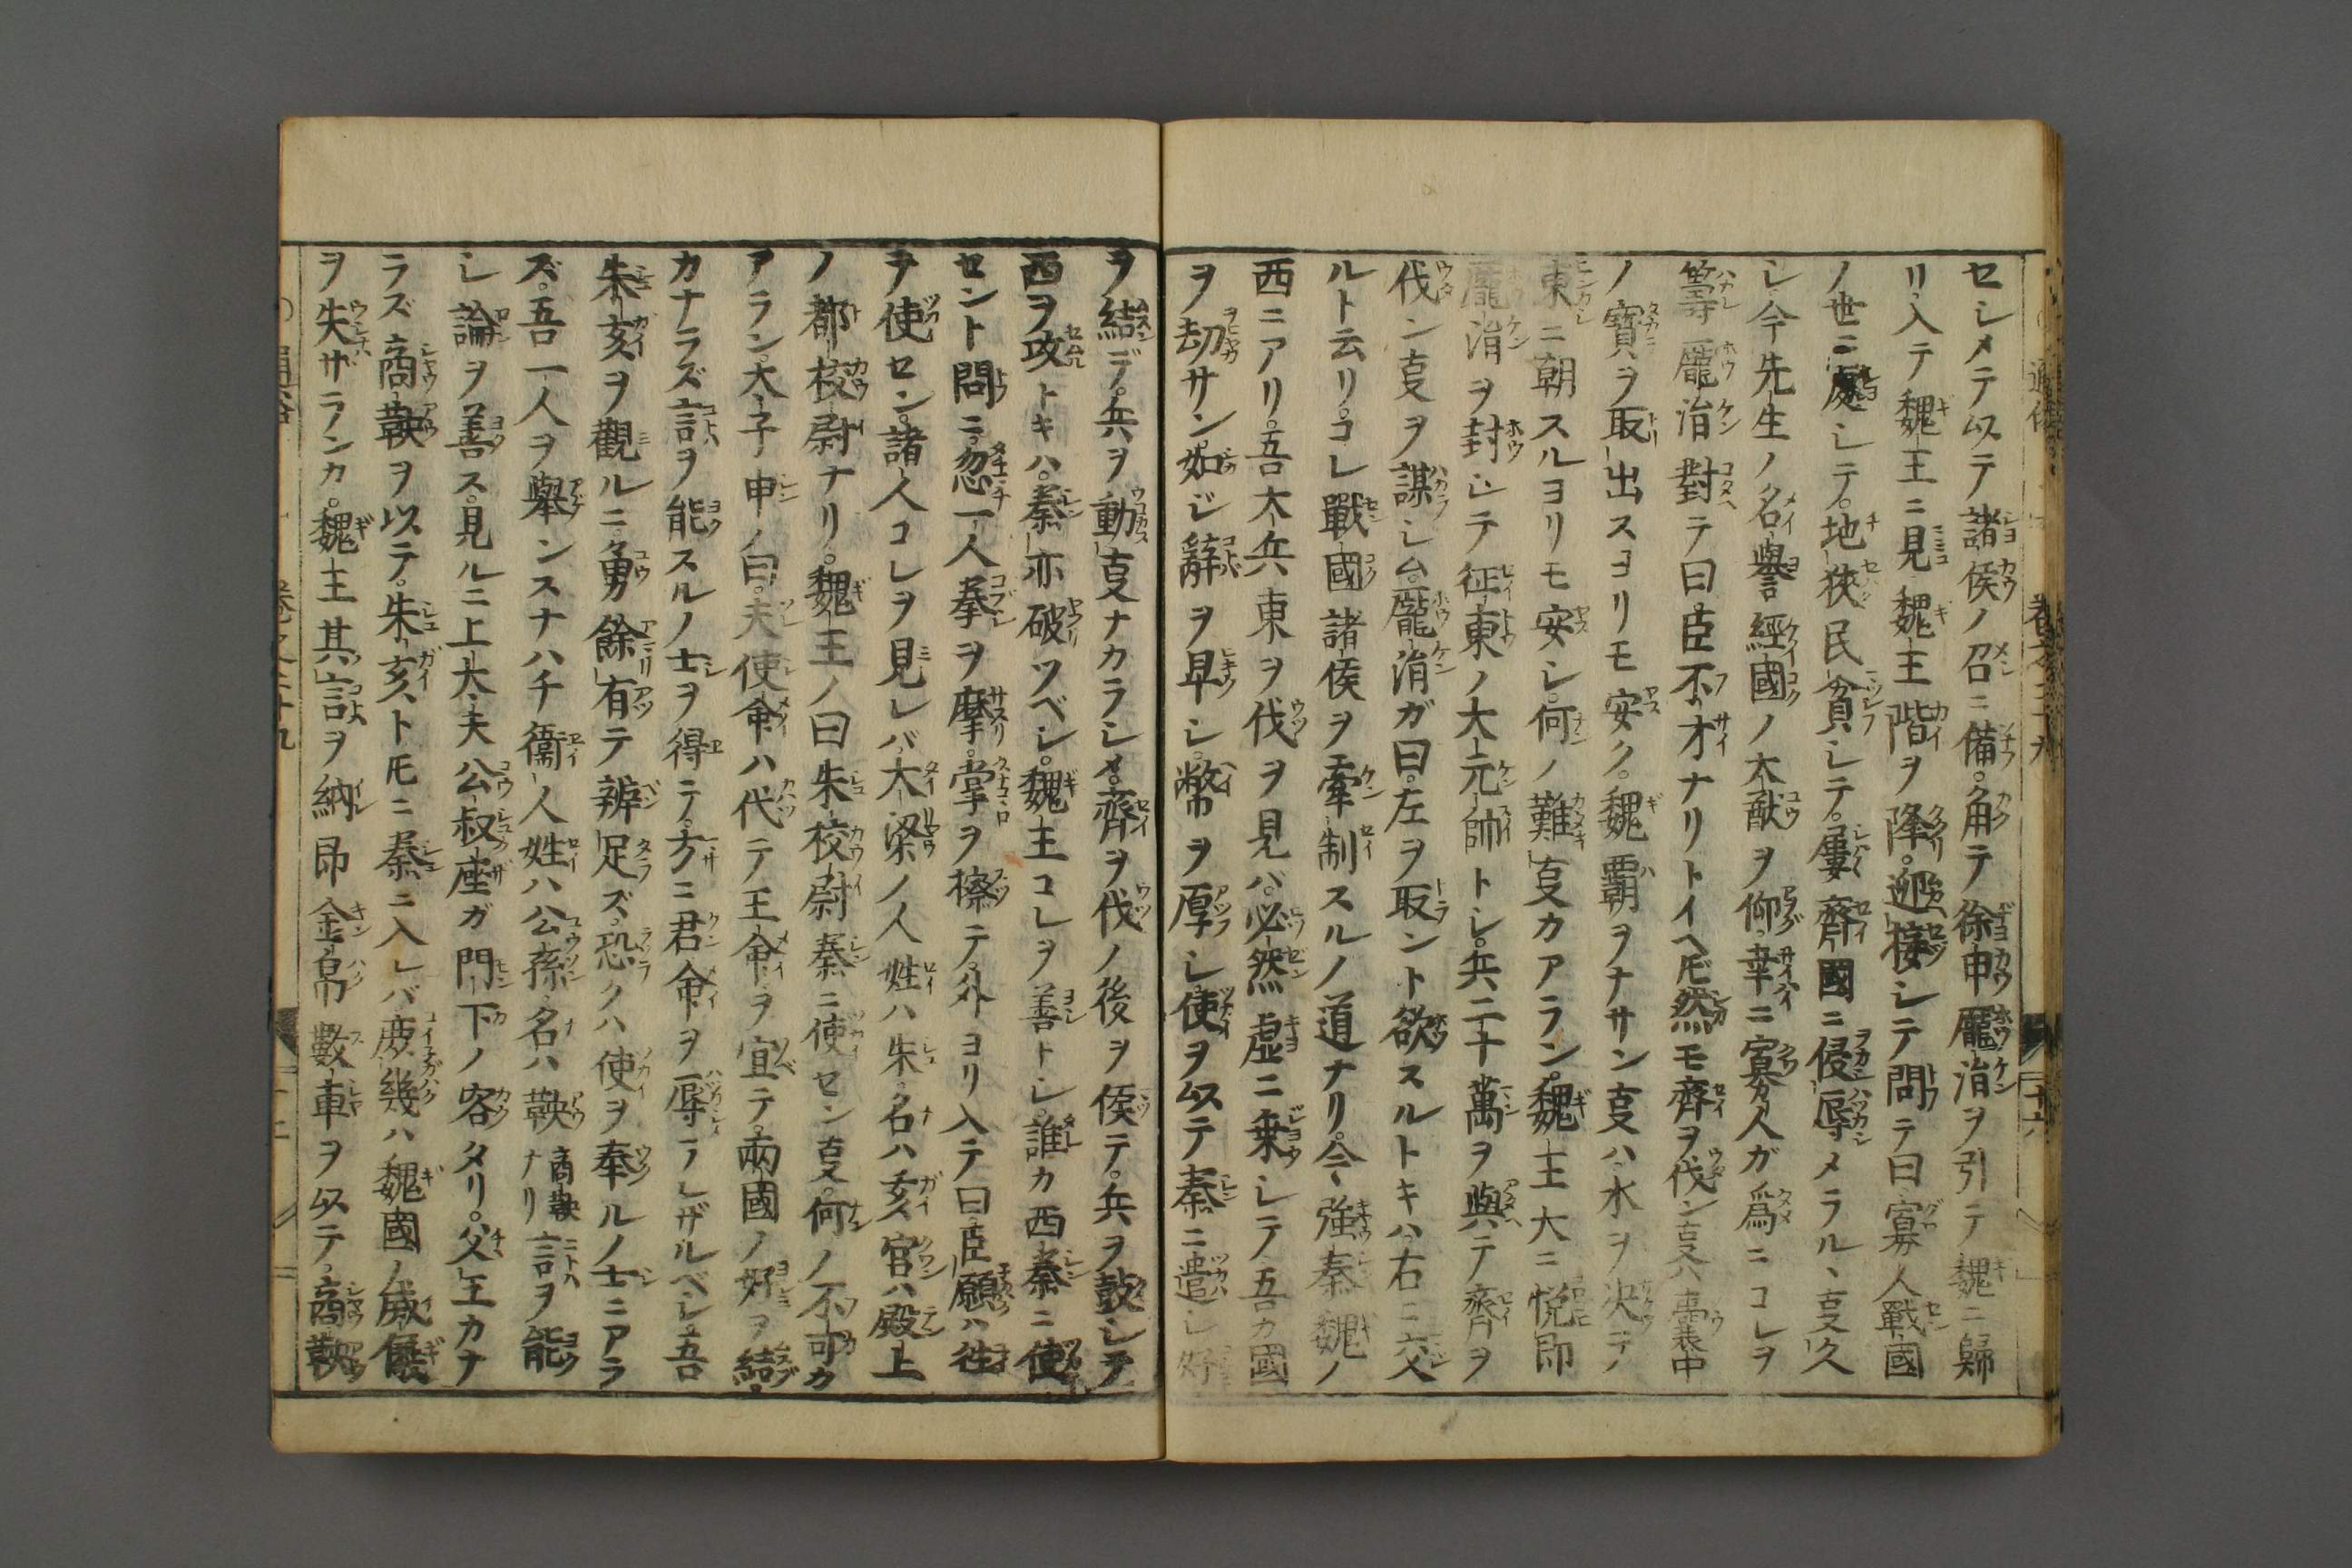 セシメテ以テ諸侯ノ召ニ備。角テ徐申龐涓ヲ引テ魏ニ歸
リ入テ魏王ニ見魏王階ヲ降。迎接シテ問テ曰寡人戰國
ノ世ニ處シテ。地狹民貧シテ。屢齊國ニ侵辱メラルヽ叓久
シ今先生ノ名譽經國ノ大猷ヲ仰。幸ニ寡人ガ爲ニコレヲ
籌龐涓對テ曰臣不才ナリトイヘ𪜈然モ齊ヲ伐ン叓ハ嚢中
ノ寶ヲ取出スヨリモ安ク。魏覇ヲナサン叓ハ水ヲ决テノ
東ニ朝スルヨリモ安シ。何ノ難叓カアラン。魏王大ニ悦即
龐涓ヲ封シテ征東ノ大元帥トシ。兵二十萬ヲ與テ齊ヲ
伐ン叓ヲ謀シム。龐涓ガ曰。左ヲ取ント欲スルトキハ右ニ交
ルト云リ。コレ戰國諸侯ヲ牽制スルノ道ナリ。今強秦魏ノ
西ニアリ。吾大兵東ヲ伐ヲ見バ。必然虛ニ乗シテ吾カ國
ヲ劫サン。如ジ辭ヲ卑シ。幣ヲ厚シ使ヲ以テ秦ニ遣シ好
ヲ結デ。兵ヲ動叓ナカラシメ。齊ヲ伐ノ後ヲ俟テ。兵ヲ鼓シテ
西ヲ攻トキハ。秦亦破ツベシ。魏王コレヲ善トシ。誰カ西秦ニ使
セント問ニ。忽一人拳ヲ摩。掌ヲ擦テ。外ヨリ入テ曰。臣願ハ往
テ使セン。諸人コレヲ見レバ。大梁ノ人姓ハ朱名ハ亥官ハ殿上
ノ都校尉ナリ。魏王ノ曰朱校尉秦ニ使セン叓。何ノ不可カ
アラン。太子申ノ曰。夫使命ハ代テ王命ヲ宜テ。兩國ノ好ヲ結。
カナラズ言ヲ能スルノ士ヲ得テ。方ニ君命ヲ辱シレザルベシ。吾
朱亥ヲ觀ルニ勇餘有テ辨足ズ。恐クハ使ヲ奉ルノ士ニアラ
ズ。吾一人ヲ舉ンスナハチ衞人姓ハ公孫名ハ鞅商鞅ナリ言ヲ能
シ論ヲ善ス。見ルニ上大夫公叔座ガ門下ノ客タリ。父王カナ
ラズ商鞅ヲ以テ。朱亥トモニ秦ニ入レバ。庶幾ハ魏國ノ威儀
ヲ失ザランカ。魏王其言ヲ納即金帛數車ヲ以テ。商鞅